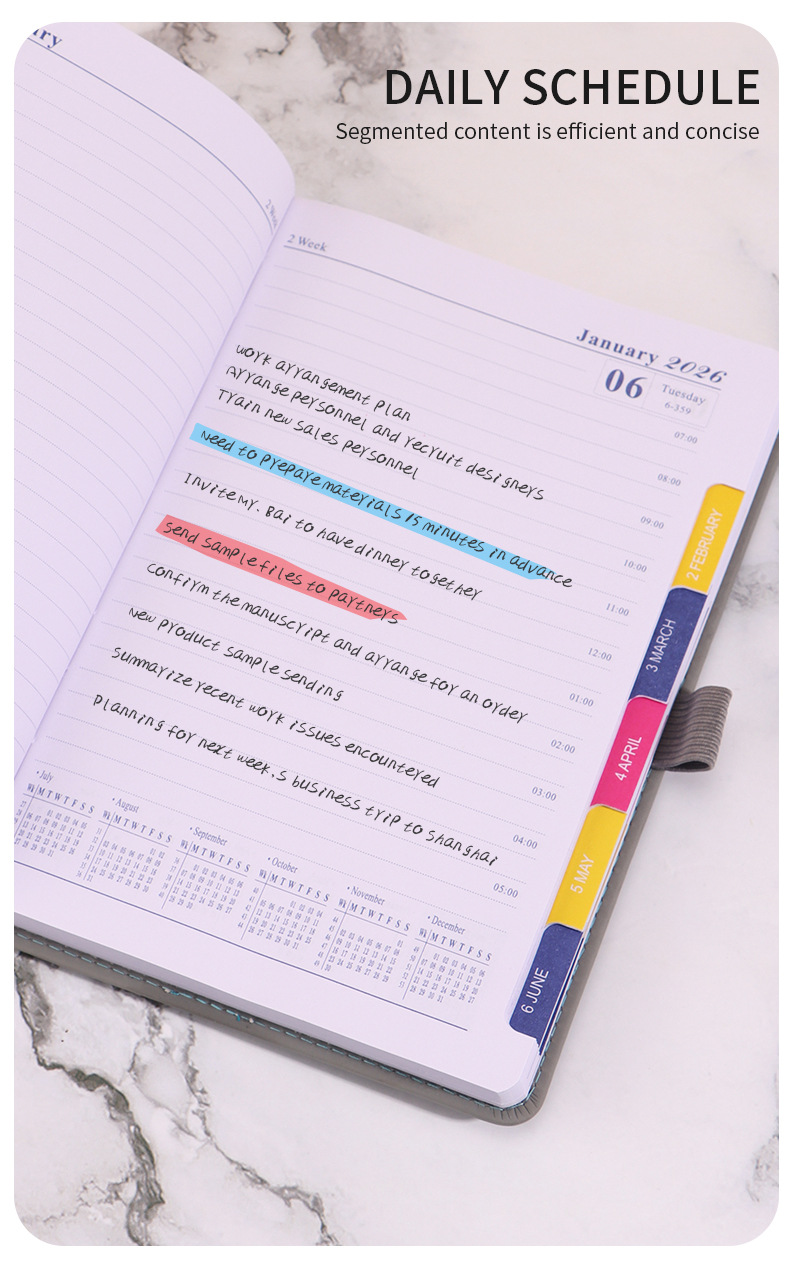 DAILY SCHEDULE
Segmented content is efficient and concise
ry
2 Week
January 2026
06
Tuesday
6-359
07:00
08:00
09:00
10:00
11:00
12:00
01:00
02:00
03:00
04:00
05:00
work arrangement plan
Arrange personnel and recruit designers
Train new sales personnel
Need to prepare materials 15 minutes in advance
Invite Mr. Bai to have dinner together
Send sample files to partners
confirm the manuscript and arrange for an order
New product sample sending
Summarize recent work issues encountered
Planning for next week.s business trip to Shanghai
2 FEBRUARY
3 MARCH
4 APRIL
5 MAY
6 JUNE
July
August
September
October
November
December
Wk M T W T F S S
Wk M T W T F S S
Wk M T W T F S S
Wk M T W T F S S
Wk M T W T F S S
Wk M T W T F S S